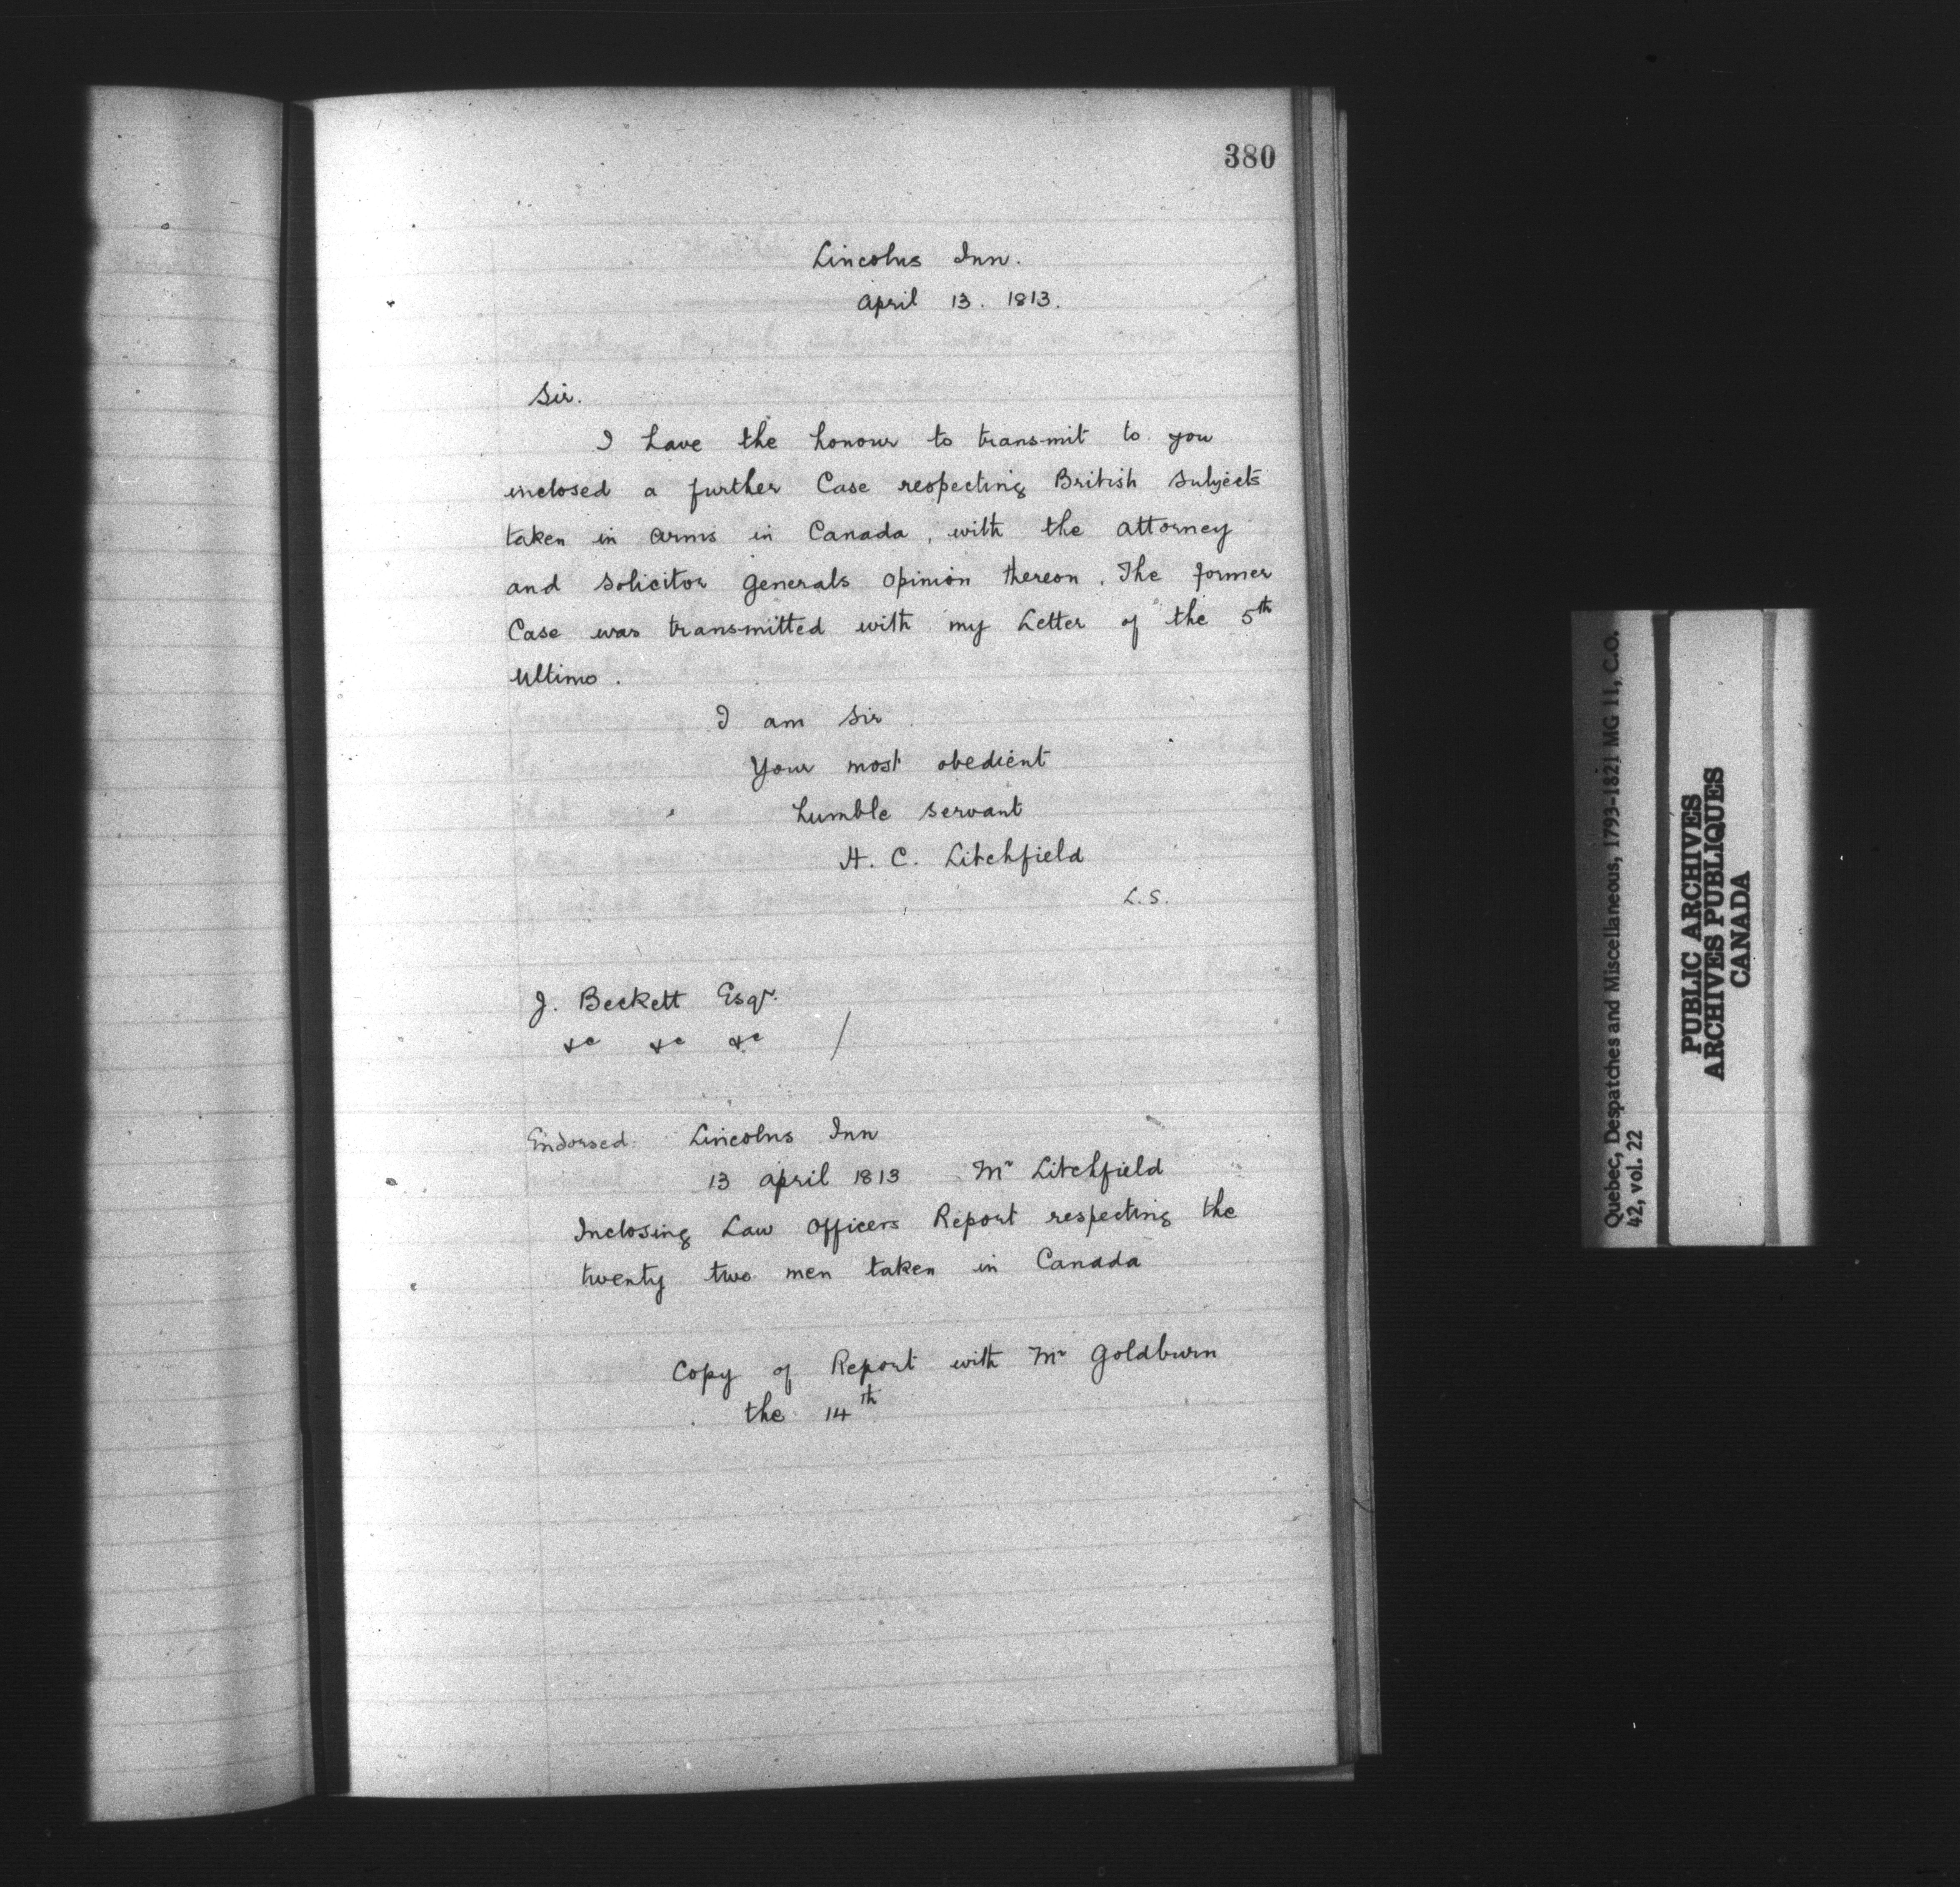 380
Lincolns Inn.
April 13. 1813.
Sir.
I have the honour to transmit to you
inclosed a further Case respecting British Subjects
taken in arms in Canada, with the attorney
and Solicitor Generals Opinion thereon. The former
Case was transmitted with my Letter of the 5th
Ultimo.
I am Sir
Your most obedient
humble servant
H. C. Litchfield
L.S.
J. Beckett Esqr.
&c &c &c /
Endorsed. Lincolns Inn
13 April 1813 Mr Litchfield
Inclosing Law Officers Report respecting the
twenty two men taken in Canada
Copy of Report with Mr Goldburn
the 14th
Quebec, Despatches and Miscellaneous, 1793-1821 MG 11, C.O.
42, vol. 22
PUBLIC ARCHIVES
ARCHIVES PUBLIQUES
CANADA